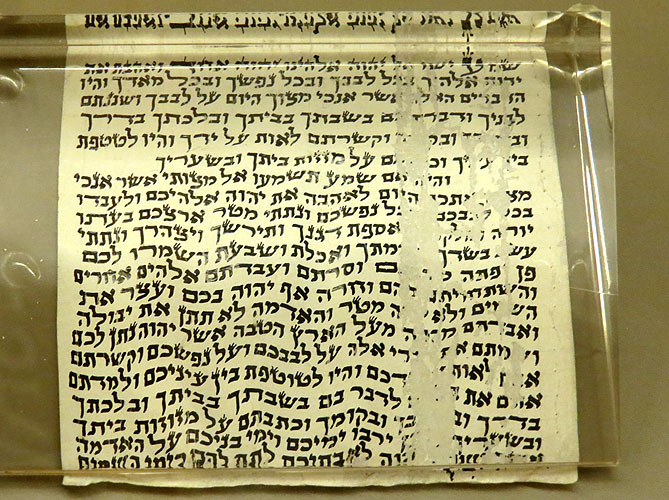 ישראל יהוה אלהינו יהוה אחד ואהבת את
יהוה אלהיך בכל לבבך ובכל נפשך ובכל מאדך והיו
הדברים האלה אשר אנכי מצוך היום על לבבך ושננתם
לבניך ודברת בם בשבתך בביתך ובלכתך בדרך
וקשרתם לאות על ידך והיו לטטפת
על מזזות ביתך ובשעריך
שמע תשמעו אל מצותי אשר אנכי
היום לאהבה את יהוה אלהיכם ולעבדו
בכל נפשכם ונתתי מטר ארצכם בעתו
יורה ואספת דגנך ותירשך ויצהרך ונתתי
עשב בשדך ואכלת ושבעת השמרו לכם
פן יפתה וסרתם ועבדתם אלהים אחרים
וחרה אף יהוה בכם ועצר את
ולא מטר והאדמה לא תתן את יבולה
מעל הארץ הטבה אשר יהוה נתן לכם
אלה על לבבכם ועל נפשכם וקשרתם
לאות והיו לטוטפת בין עיניכם ולמדתם
את לדבר בם בשבתך בביתך ובלכתך
בדרך ובקומך וכתבתם על מזוזות ביתך
ירבו ימיכם וימי בניכם על האדמה
לאבתיכם לתת להם כימי השמים